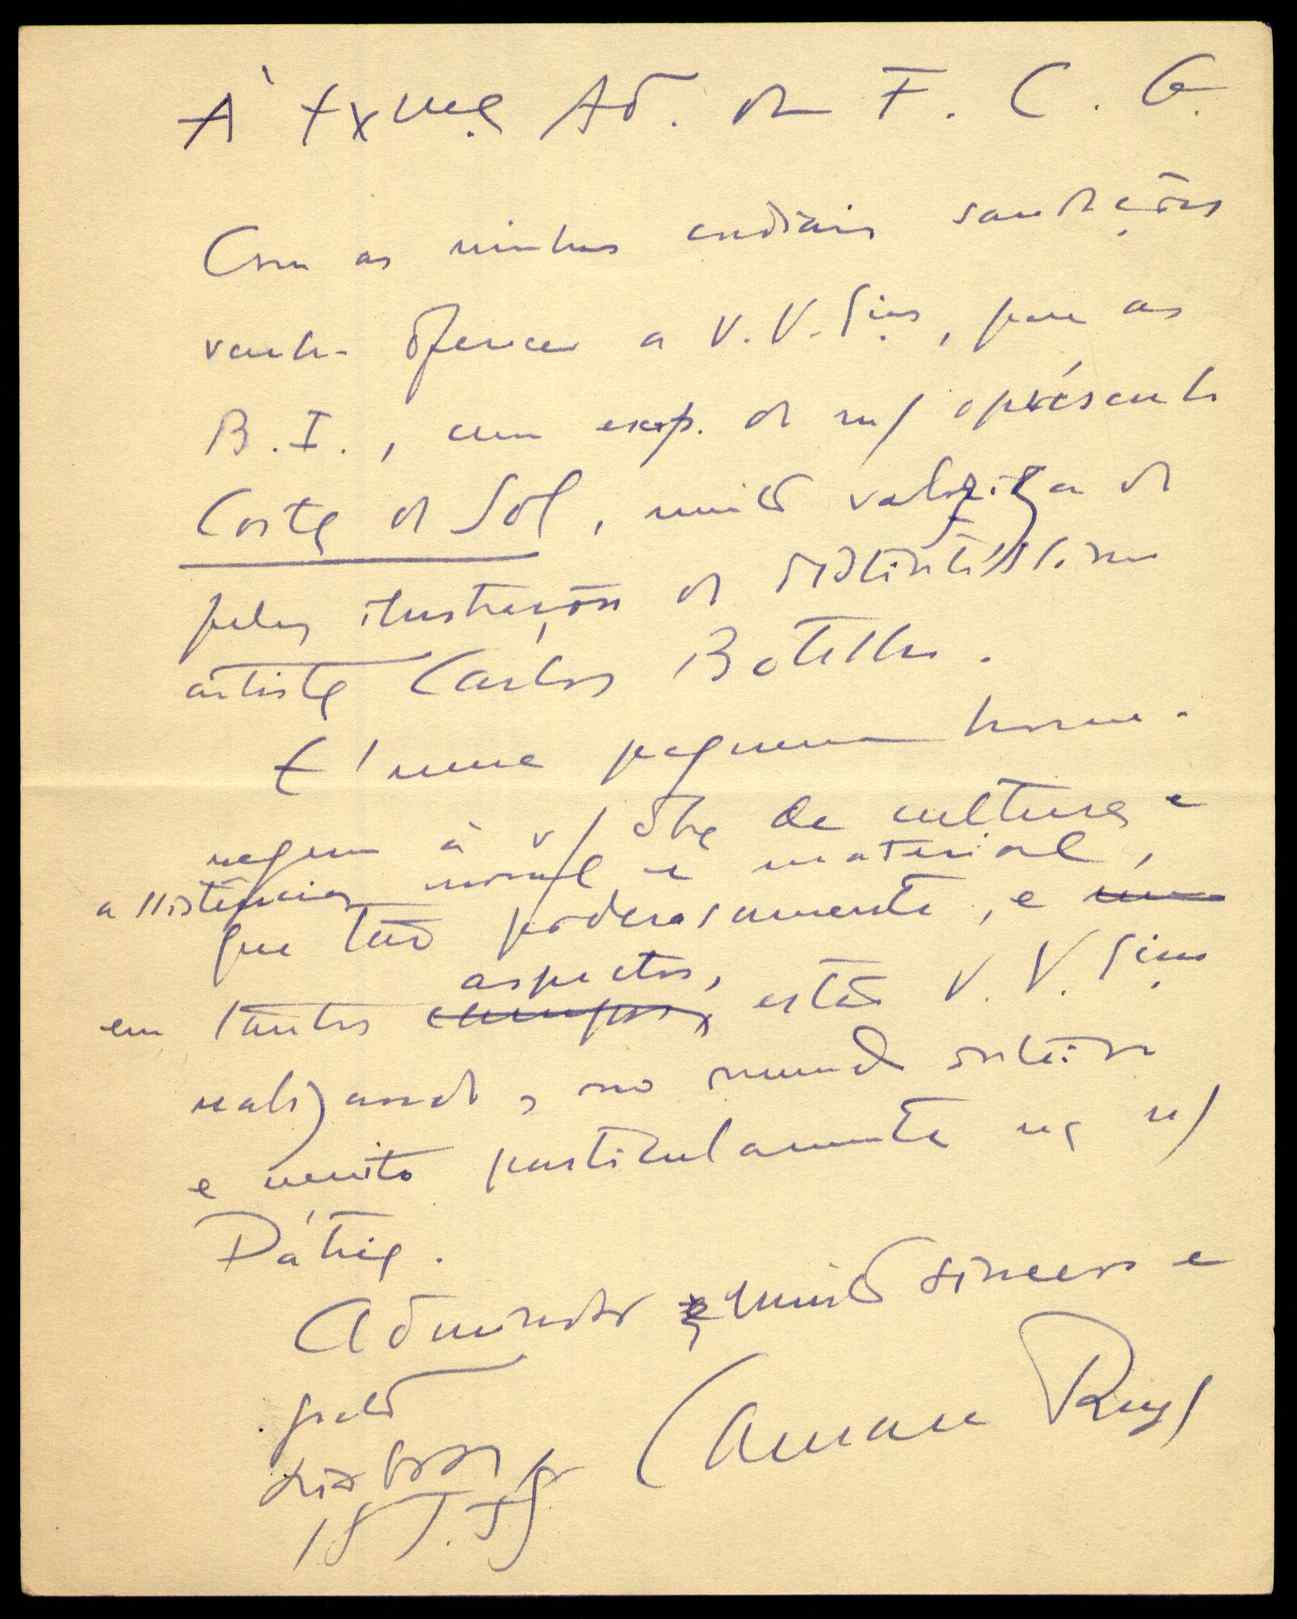 À Exma. Ad. da F. C. G.
Com as minhas cordiais saudações
venho oferecer a V. V. Sias, para as
B. I., um exp. do m/ opúsculo
Costa do Sol, muito valorizado
pelas ilustrações do distintíssimo
artista Carlos Botelho.
É uma pequena home-
nagem à v/ obra de cultura e
assistência moral e material,
que tão poderosamente, e
em tantos aspectos, estão V. V. Sias
realizando, no mundo inteiro
e muito particularmente na n/
Pátria.
Admirador muito sincero e
grato
Lisboa